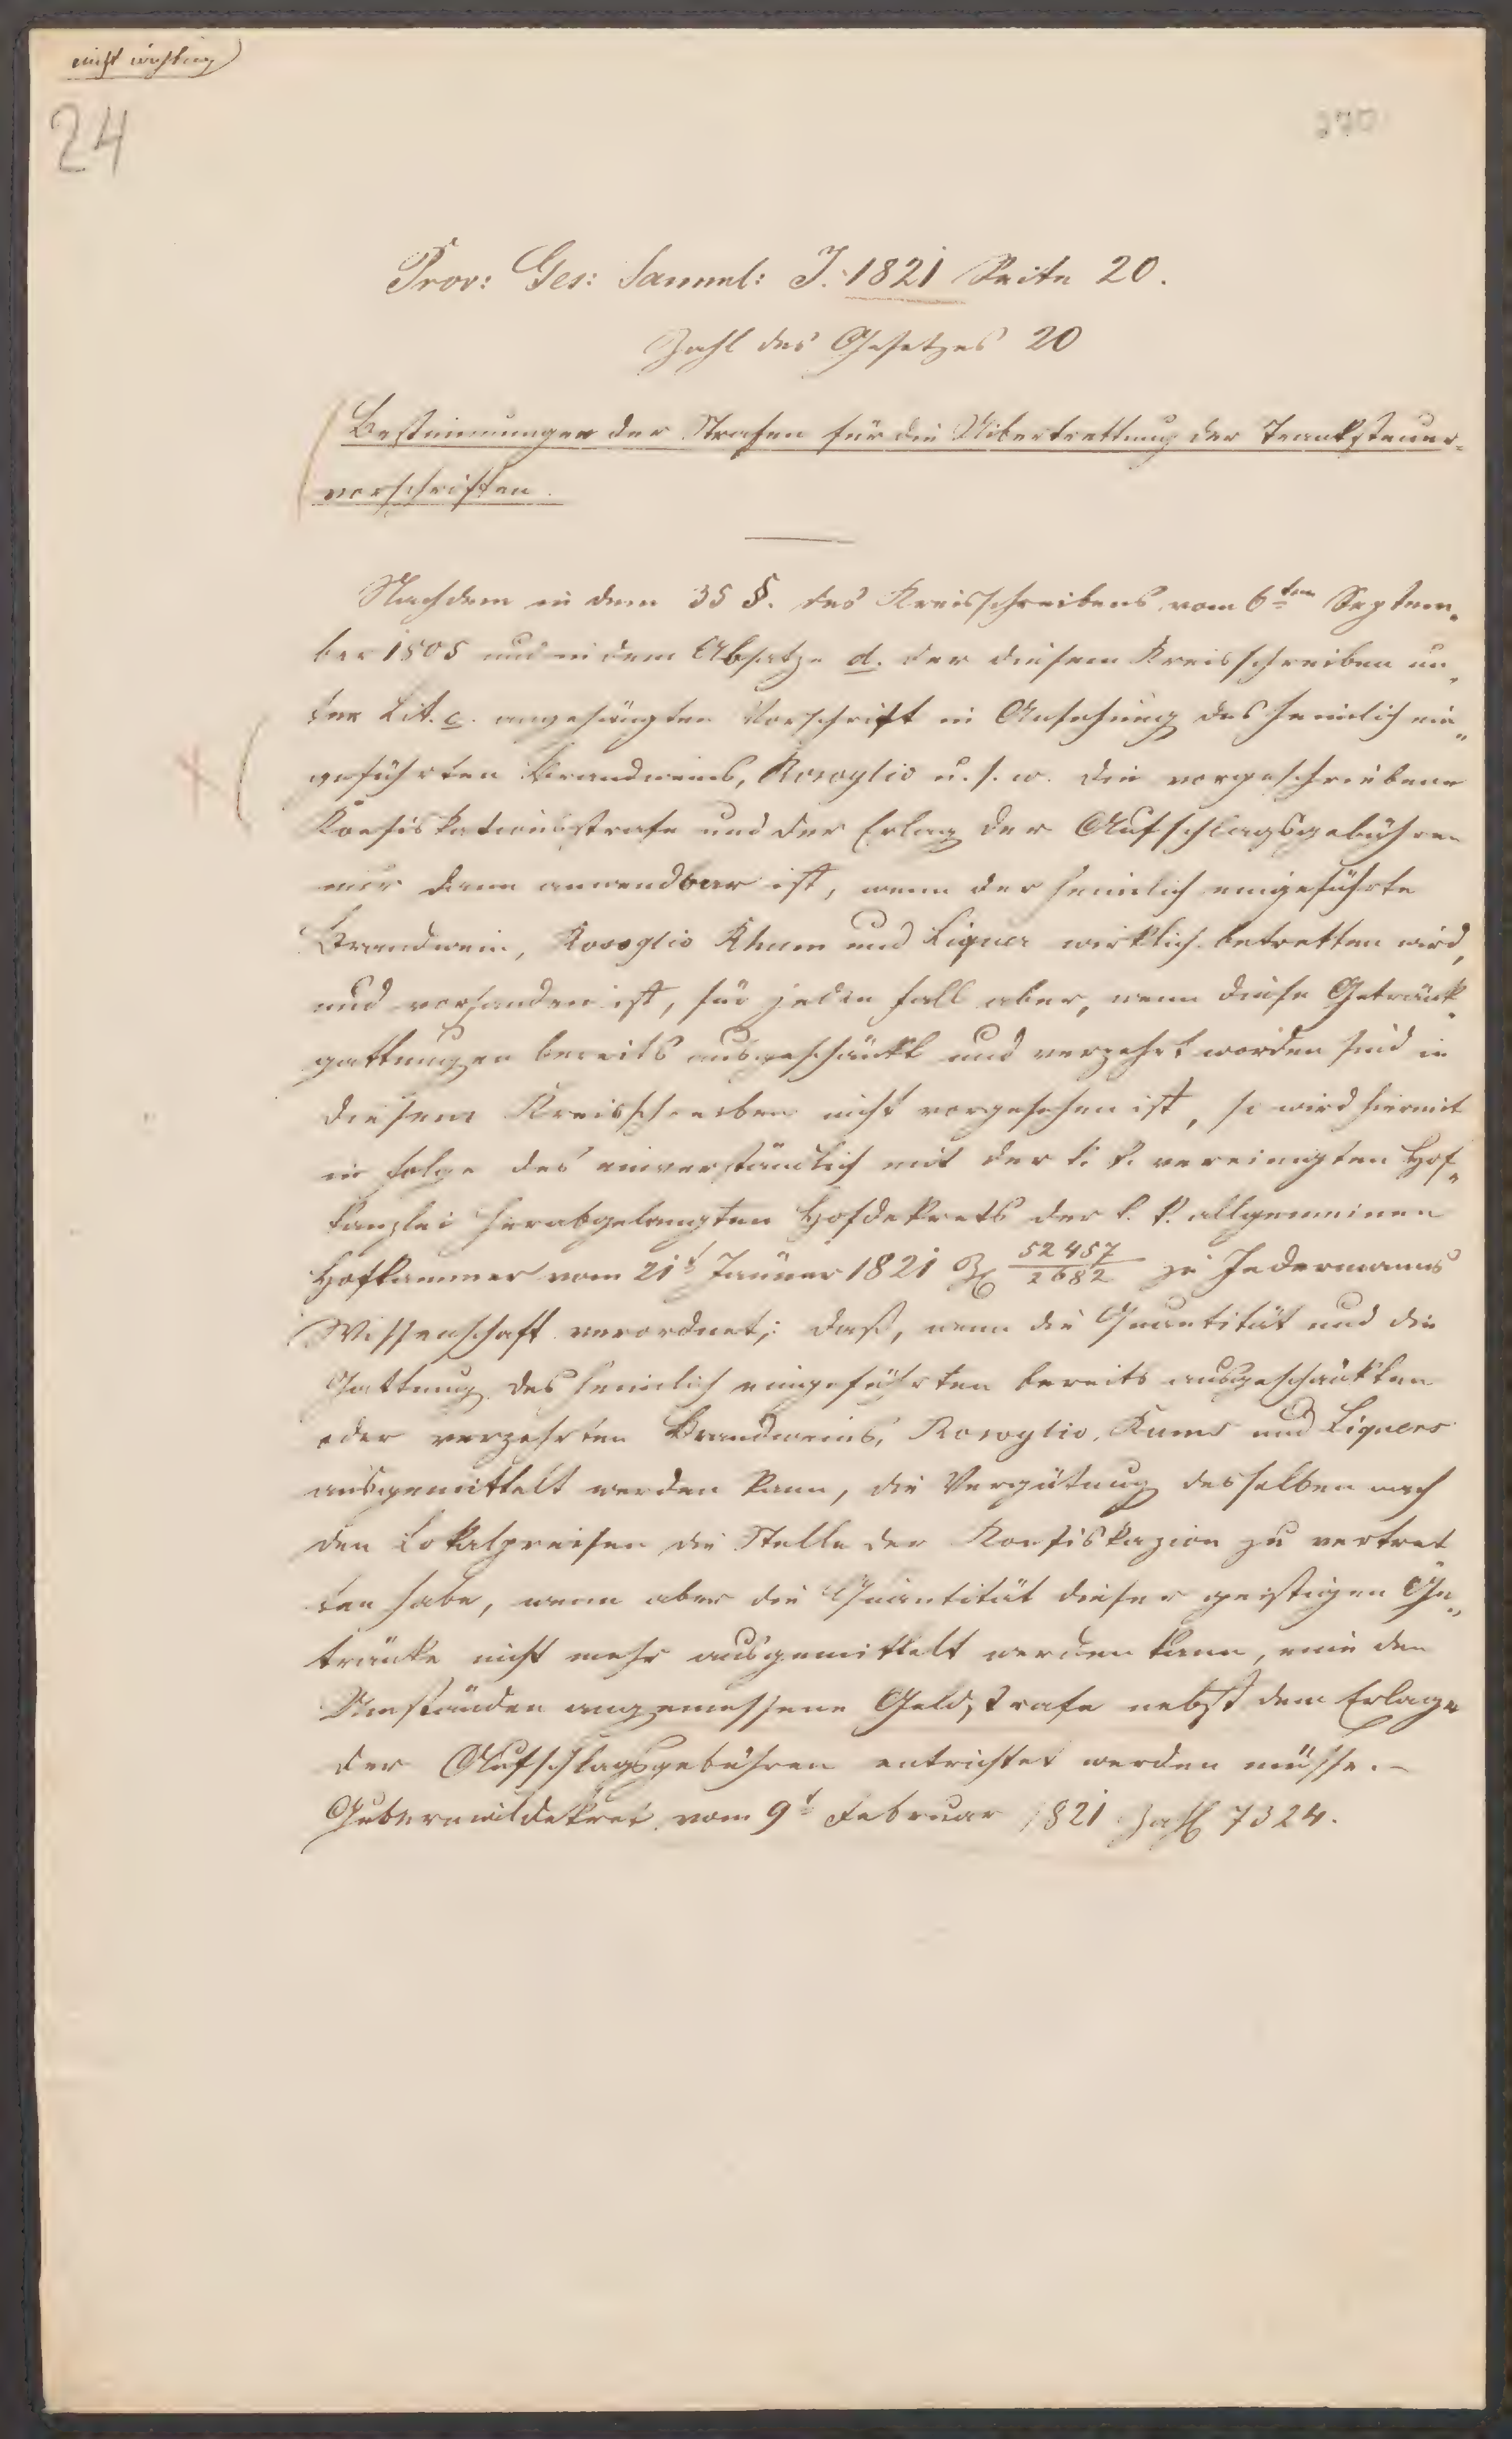 nicht wichtig
24
270
Prov: Ges: Samml: J. 1821 Seite 20.
Zahl des Gesetzes 20
Bestimmungen der Strafen für die Uibertrettung der Tranksteuer-
vorschriften.
Nachdem in dem 35 §. des Kreisschreibens vom 6ten Septem-
ber 1805 und in dem Absatze d. der diesem Kreisschreiben un-
ter Lit. c. angehängten Vorschrift in Ansehung des heimlich ein-
geführten Brandweins, Rosoglio u. s. w. die vorgeschriebene
Konfiskationsstrafe und der Erlag der Aufschlagsgebühren
nur dann anwendbar ist, wenn der heimlich eingeführte
Brandwein, Rosoglio Rhum und Liquer wirklich betretten wird,
und vorhanden ist, für jeden Fall aber, wenn diese Getränk-
gattungen bereits ausgeschänkt und verzehrt worden sind in
diesem Kreisschreiben nicht vorgesehen ist, so wird hiermit
in Folge des einverständlich mit der k. k. vereinigten Hof-
kanzlei herabgelangten Hofdekrets der k. k. allgemeinen
Hofkammer vom 21t Jänner 1821 Z 52457/2682 zu Jedermanns
Wissenschaft verordnet; daß, wenn die Quantität und die
Gattung des heimlich eingeführten bereits ausgeschänkten
oder verzehrten Brandweins, Rosoglio, Rums und Liquers
ausgemittelt werden kann, die Vergütung desselben nach
den Lokalpreisen die Stelle der Konfiskazion zu vertret
ten habe, wenn aber die Quantität dieser geistigen Ge-
tränke nicht mehr ausgemittelt werden kann, eine den
Umständen angemessene Geldstrafe nebst dem Erlage
der Aufschlagsgebühren entrichtet werden müsse.-
Gubernialdekret vom 9t Februar 1821 Zahl 7324.